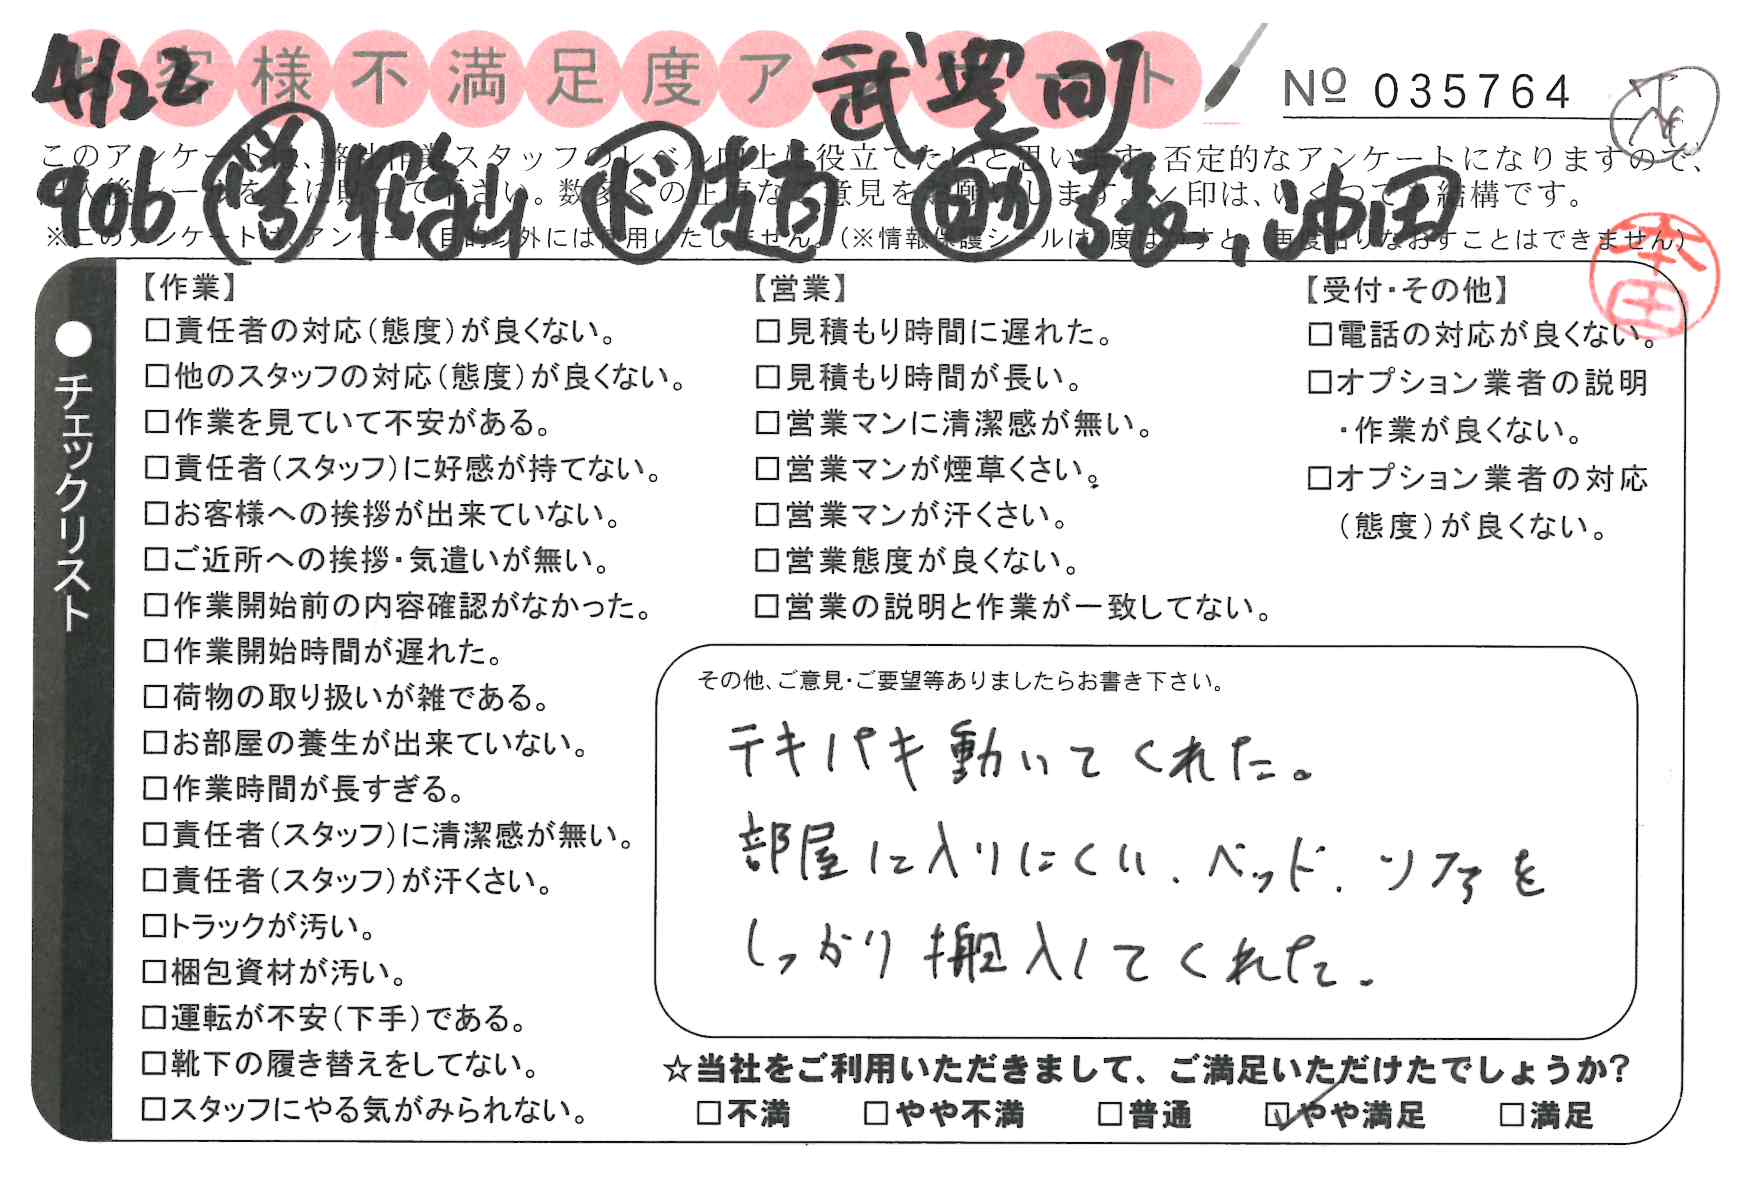 お客様不満足度アンケート
4/22 武豊町
№ 035764
このアンケートは、弊社作業スタッフのレベル向上に役立てたいと思います。否定的なアンケートになりますので、
906
下さい。数多くの正直なご意見をお願いします。✓印は、いくつでも結構です。
助 張、沖田
※このアンケートは、アンケート目的以外には使用いたしません。(※情報保護シールは1度はがすと、再度貼りなおすことはできません)
本田
●チェックリスト
【作業】
□責任者の対応(態度)が良くない。
□他のスタッフの対応(態度)が良くない。
□作業を見ていて不安がある。
□責任者(スタッフ)に好感が持てない。
□お客様への挨拶が出来ていない。
□ご近所への挨拶・気遣いが無い。
□作業開始前の内容確認がなかった。
□作業開始時間が遅れた。
□荷物の取り扱いが雑である。
□お部屋の養生が出来ていない。
□作業時間が長すぎる。
□責任者(スタッフ)に清潔感が無い。
□責任者(スタッフ)が汗くさい。
□トラックが汚い。
□梱包資材が汚い。
□運転が不安(下手)である。
□靴下の履き替えをしてない。
□スタッフにやる気がみられない。
【営業】
□見積もり時間に遅れた。
□見積もり時間が長い。
□営業マンに清潔感が無い。
□営業マンが煙草くさい。
□営業マンが汗くさい。
□営業態度が良くない。
□営業の説明と作業が一致してない。
【受付・その他】
□電話の対応が良くない。
□オプション業者の説明
・作業が良くない。
□オプション業者の対応
(態度)が良くない。
その他、ご意見・ご要望等ありましたらお書き下さい。
テキパキ動いてくれた。
部屋に入りにくい、ベッド、ソファを
しっかり搬入してくれた。
☆当社をご利用いただきまして、ご満足いただけたでしょうか?
□不満 □やや不満 □普通 ☑やや満足 □満足